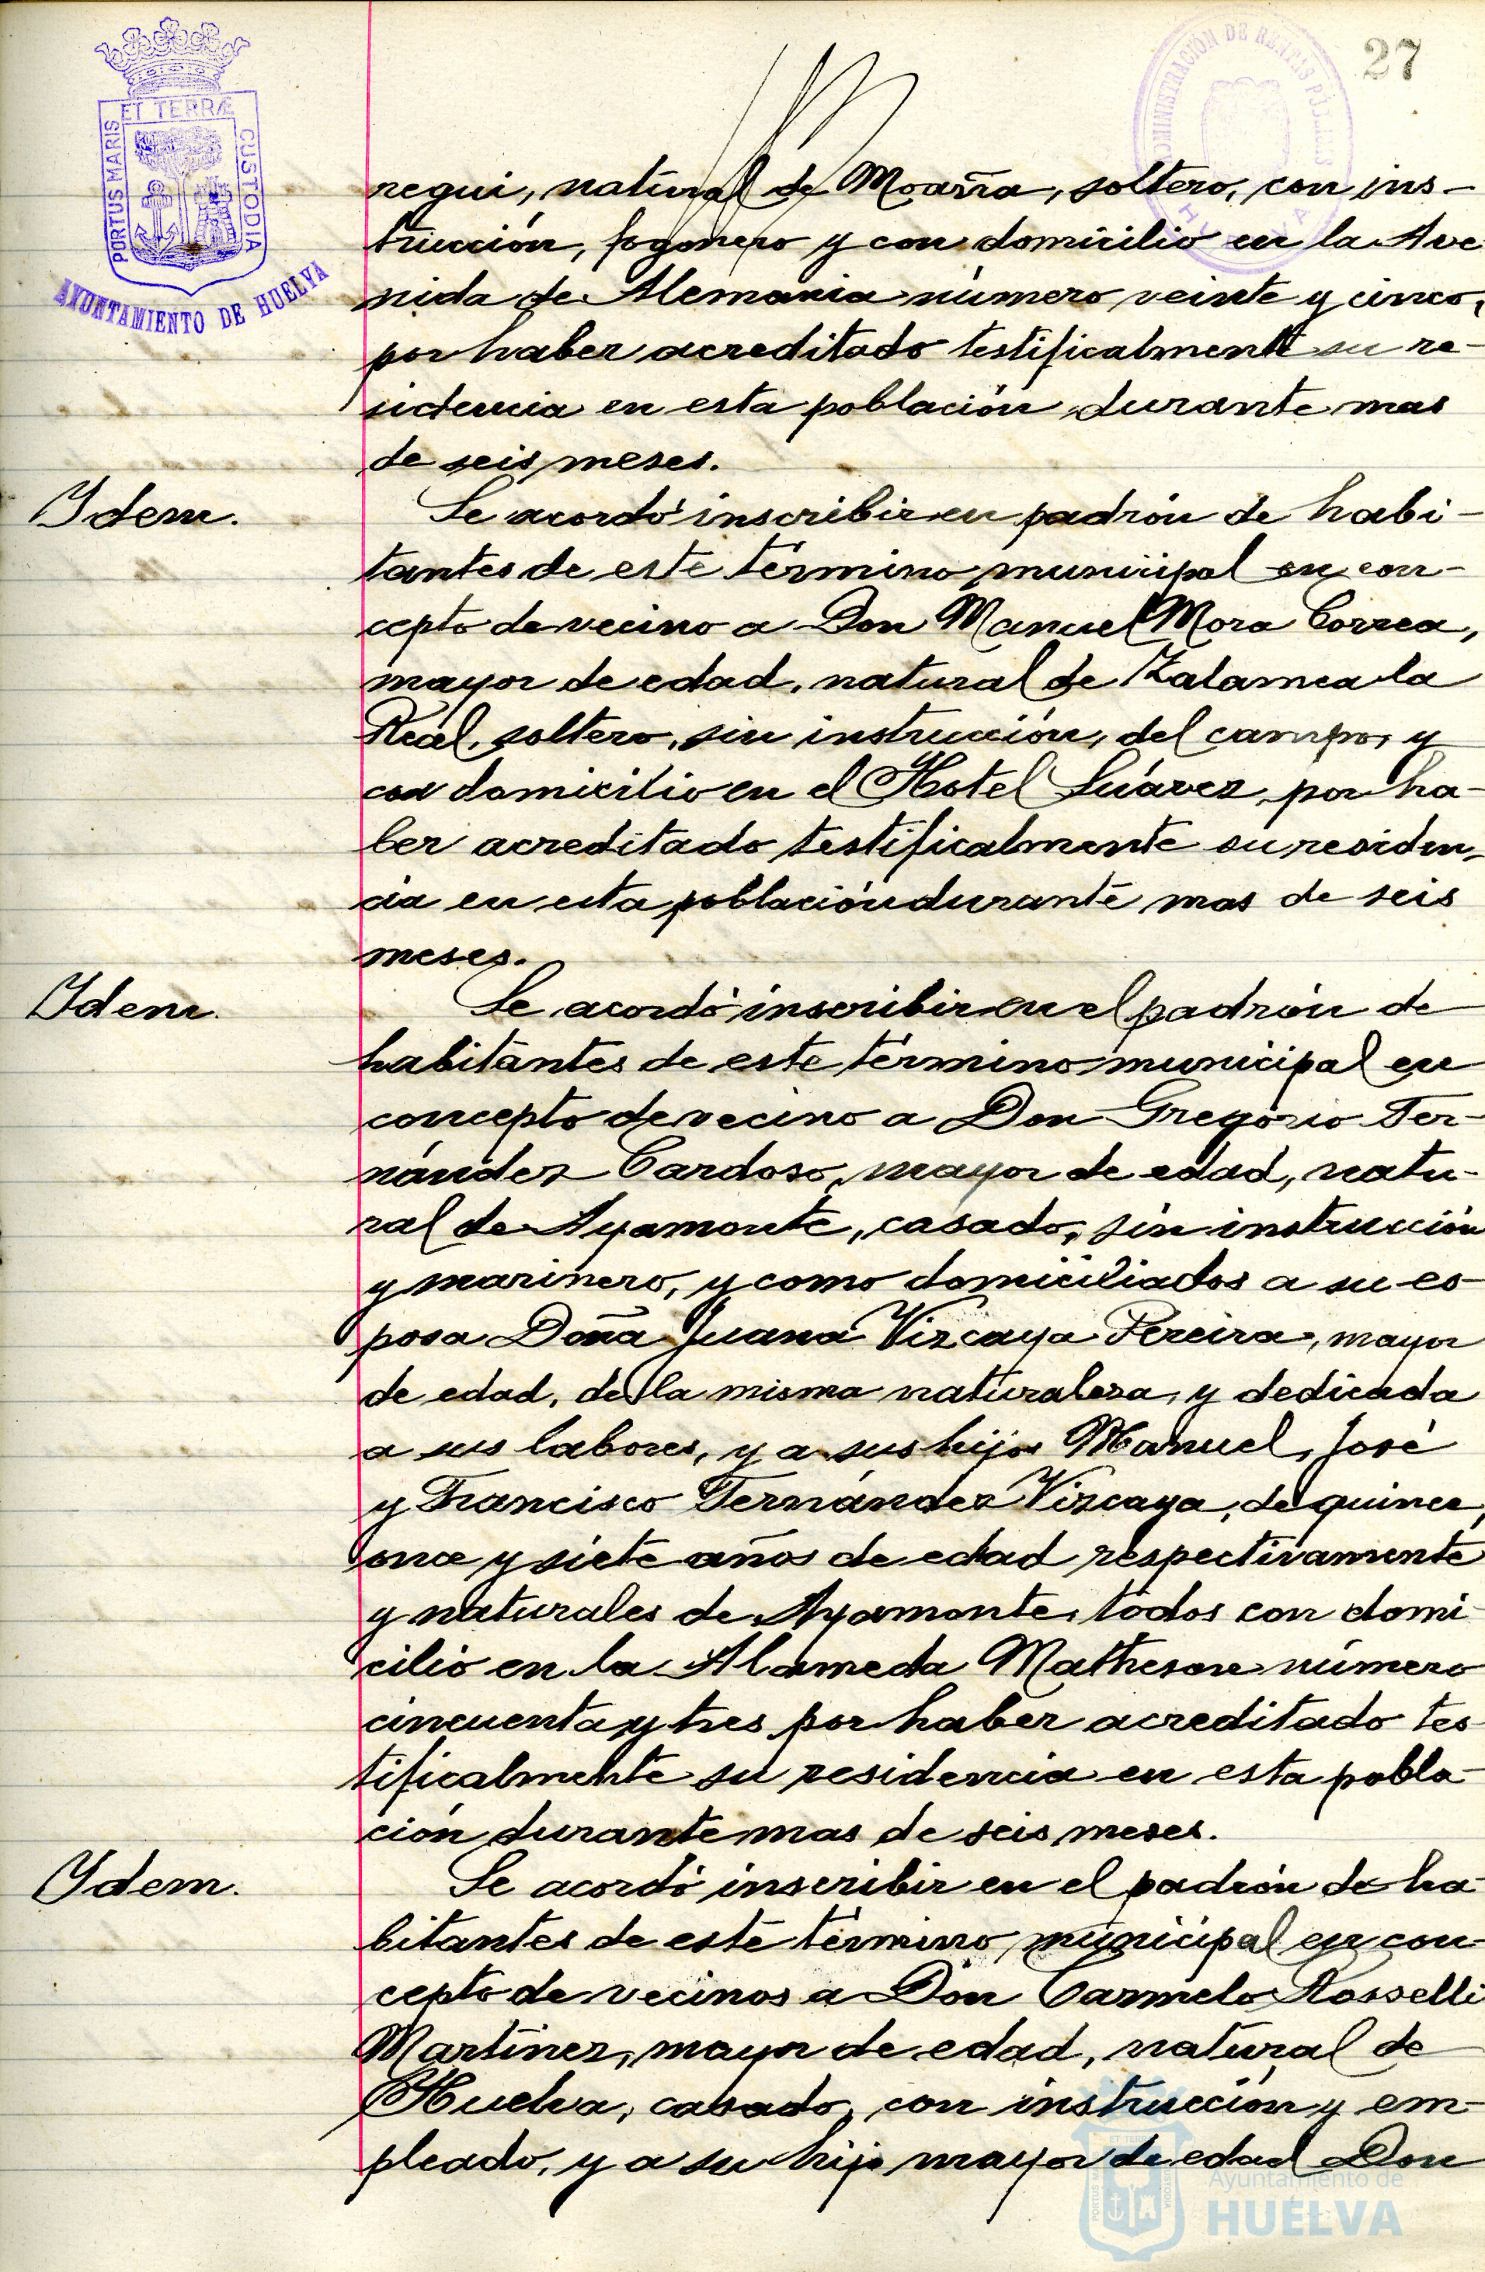 27
ET TERRÆ
PORTUS MARIS
CUSTODIA
AYUNTAMIENTO DE HUELVA
ADMINISTRACIÓN DE RENTAS PÚBLICAS
HUELVA
regui, natural de Moaña, soltero, con ins-
trucción, fogonero y con domicilio en la Ave
nida de Alemania número veinte y cinco,
por haber acreditado testificalmente su re-
sidencia en esta población durante mas
de seis meses.
Ydem.
Se acordó inscribir en padrón de habi-
tantes de este término municipal en con-
cepto de vecino a Don Manuel Mora Correa,
mayor de edad, natural de Zalamea la
Real, soltero, sin instrucción, del campo, y
con domicilio en el Hotel Suárez, por ha-
ber acreditado testificalmente su residen-
cia en esta población durante mas de seis
meses.
Ydem.
Se acordó inscribir en el padrón de
habitantes de este término municipal en
concepto de vecino a Don Gregorio Fer-
nández Cardoso, mayor de edad, natu-
ral de Ayamonte, casado, sin instrucción
y marinero, y como domiciliados a su es-
posa Doña Juana Vizcaya Pereira, mayor
de edad, de la misma naturaleza, y dedicada
a sus labores, y a sus hijos Manuel, José
y Francisco Fernández Vizcaya, de quince,
once y siete años de edad respectivamente
y naturales de Ayamonte, todos con domi-
cilio en la Alameda Matheson número
cincuenta y tres por haber acreditado tes-
tificalmente su residencia en esta pobla-
ción durante mas de seis meses.
Ydem.
Se acordó inscribir en el padrón de ha-
bitantes de este término municipal en con-
cepto de vecinos a Don Carmelo Rosselli
Martínez, mayor de edad, natural de
Huelva, casado, con instrucción y em-
pleado, y a su hijo mayor de edad Don
Ayuntamiento de
HUELVA